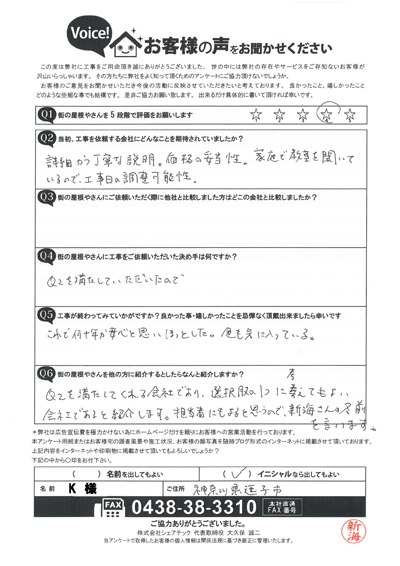 Voice!
お客様の声をお聞かせください
この度は弊社に工事をご用命頂き誠にありがとうございました。世の中には弊社の存在やサービスをご存知ないお客様が
沢山いらっしゃいます。その方たちに弊社をよく知って頂くためのアンケートにご協力頂けないでしょうか。
お客様のご意見をお聞かせいただき今後の活動に反映させていただきたいと考えております。良かったこと、嬉しかったこと
どのような些細な事でも結構です。是非ご協力お願い致します。出来るだけ具体的に書いて頂ければ幸いです。
Q1 街の屋根やさんを5段階で評価をお願いします ☆ ☆ ☆ ☆ ☆
Q2 当初、工事を依頼する会社にどんなことを期待されていましたか?
詳細かつ丁寧な説明。価格の妥当性。家庭で教室を開いて
いるので、工事日の調整可能性。
Q3 街の屋根やさんにご依頼いただく際に他社と比較しました方はどこの会社と比較しましたか?
Q4 街の屋根やさんに工事をご依頼いただいた決め手は何ですか?
Q2を満たしていただいたので
Q5 工事が終わってみていかがですか?良かった事・嬉しかったことを忌憚なく頂戴出来ましたら幸いです
これで何十年か安心と思いほっとした。色も気に入っている。
Q6 街の屋根やさんを他の方に紹介するとしたらなんと紹介しますか?
Q2を満たしてくれる会社であり、選択肢の1つに考えてもよい
会社であると紹介します。担当者にもよると思うので、新海さんの名前
を言います。
*弊社は広告宣伝費を極力かけない為にホームページだけを頼りにお客様への営業活動を行っております。
本アンケート用紙またはお客様宅の調査風景や施工状況、お客様の顔写真を随時ブログ形式のインターネットに掲載させて頂いております。
上記内容をインターネットや印刷物に掲載させて頂いてもよろしいでしょうか?
下記の中から○印をお付下さい。
( )名前を出してもよい (✓)イニシャルなら出しても良い
お名前 K 様 ご住所 神奈川県逗子市
FAX 0438-38-3310 本社直通 FAX番号
ご協力ありがとうございました。
株式会社シェアテック 代表取締役 大久保 誠二
当アンケートで取得したお客様の個人情報は関係法規に基づき厳正に管理いたします。
新海